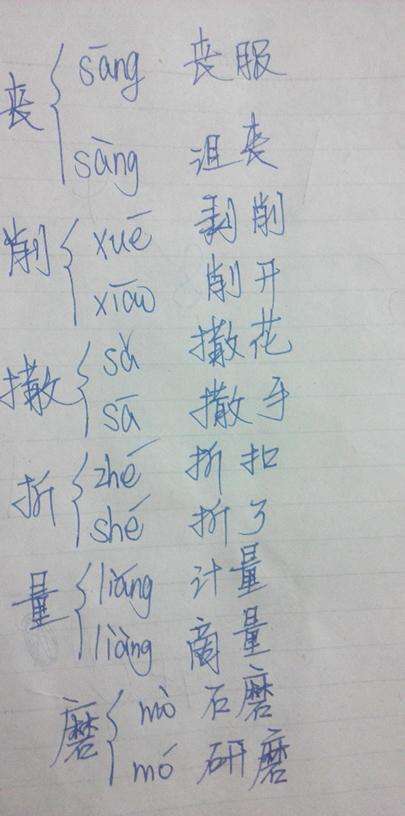 丧
sāng 丧服
sàng 沮丧
削
xuē 剥削
xiāo 削开
撒
sǎ 撒花
sā 撒手
折
zhé 折扣
shé 折了
量
liáng 计量
liàng 商量
磨
mò 石磨
mó 研磨